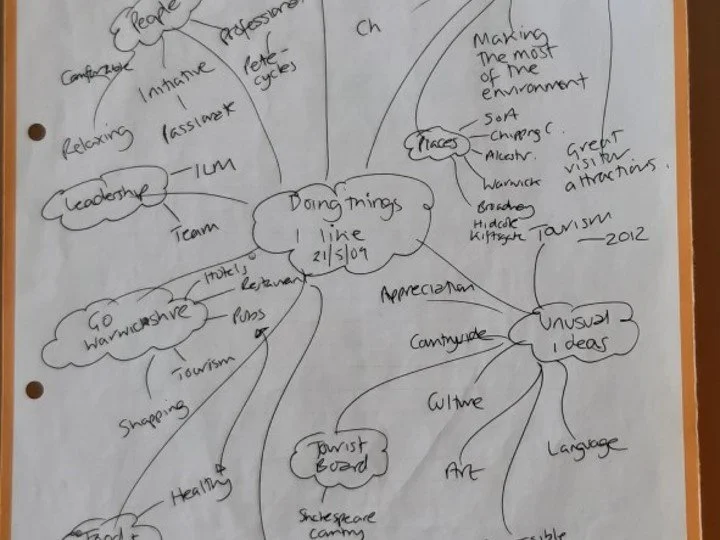 People
Professional
Pete-
cycles
Comfortable
Initiative
Passionate
Relaxing
Ch
Making
the most
of the
environment
Places
SOA
Chipping C.
Alcestr.
Warwick
Broadway
Hidcote
Kiftsgate
Great
visitor
attractions.
Leadership
ILM
Team
Doing things
I like
21/5/09
Tourism
2012
GO
Warwickshire
Hotels
Restaurant
Pubs
Tourism
Shopping
Appreciation
Unusual
ideas
Culture
Art
Language
Tourist
Board
Shakespeare
Country
Healthy
Food +